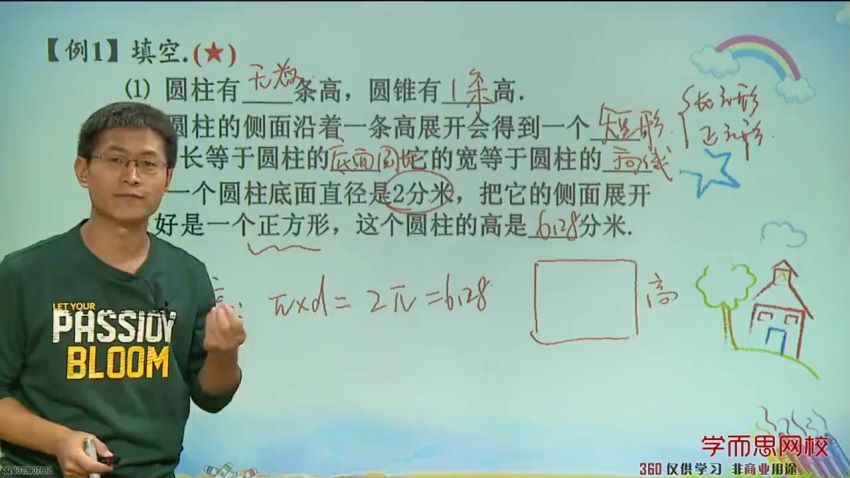 【例1】填空.(★)
⑴ 圆柱有无数条高，圆锥有1条高.
圆柱的侧面沿着一条高展开会得到一个矩形
长方形
正方形
长等于圆柱的底面周长它的宽等于圆柱的高线
一个圆柱底面直径是2分米，把它的侧面展开
好是一个正方形，这个圆柱的高是6.28分米.
高：π×d=2π=6.28
高
LET YOUR
PASSION
BLOOM
学而思网校
360 仅供学习 非商业用途